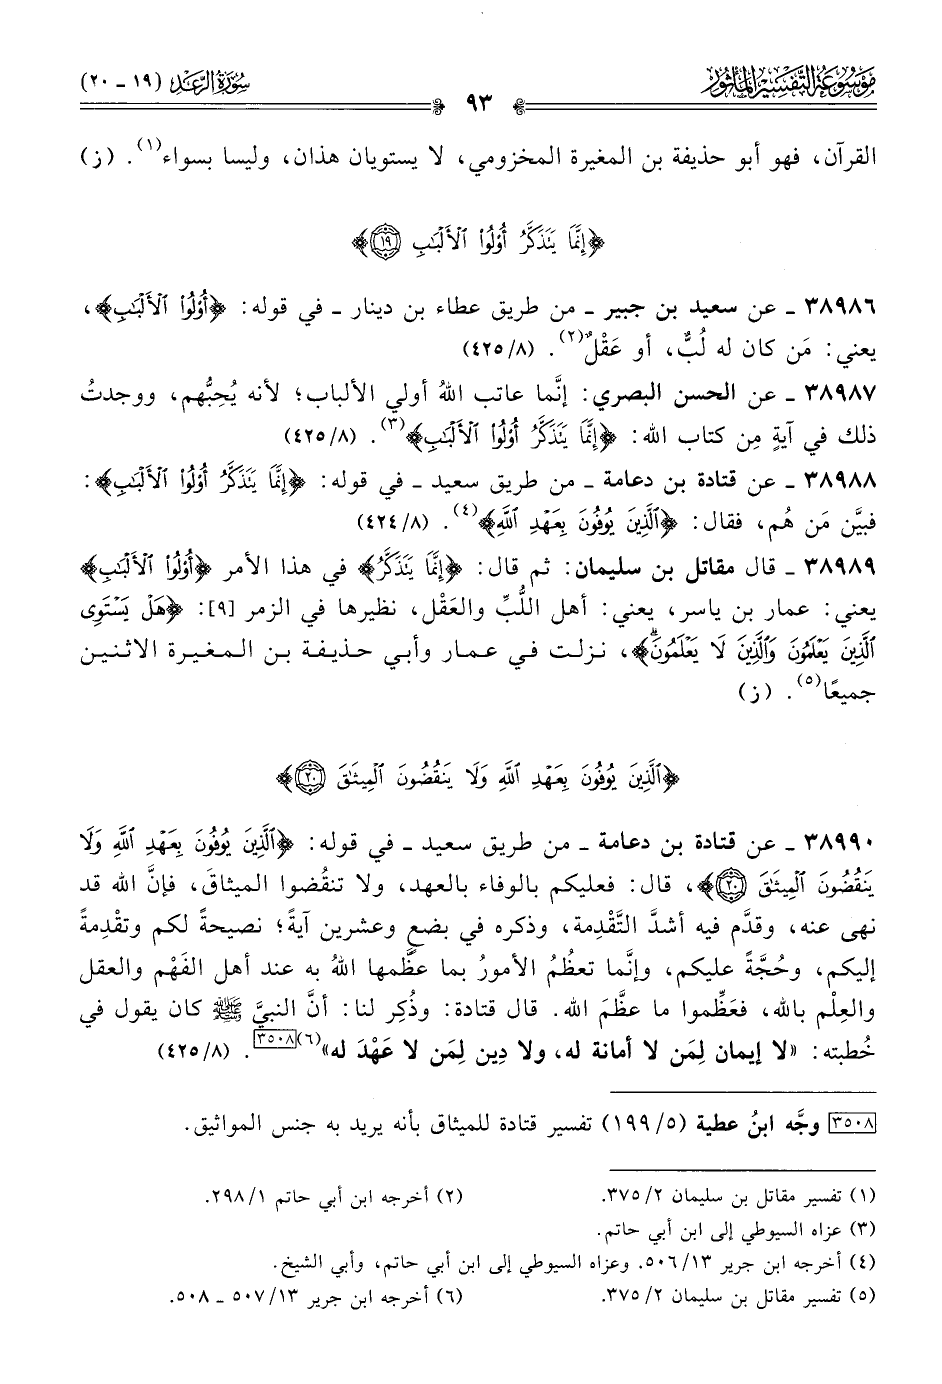 مَوْسُوعَة التَّفْسِير المَأْثُور
سُورَةُ الرَّعْد (١٩ ـ ٢٠)
٩٣
القرآن، فهو أبو حذيفة بن المغيرة المخزومي، لا يستويان هذان، وليسا بسواء(١). (ز)
﴿إِنَّمَا يَتَذَكَّرُ أُوْلُواْ ٱلْأَلْبَٰبِ ١٩﴾
٣٨٩٨٦ ـ عن سعيد بن جبير ـ من طريق عطاء بن دينار ـ في قوله: ﴿أُوْلُواْ ٱلْأَلْبَٰبِ﴾،
يعني: مَن كان له لُبٌّ، أو عَقْلٌ(٢). (٤٢٥/٨)
٣٨٩٨٧ ـ عن الحسن البصري: إنَّما عاتب اللهُ أولي الألباب؛ لأنه يُحِبُّهم، ووجدتُ
ذلك في آيةٍ مِن كتاب الله: ﴿إِنَّمَا يَتَذَكَّرُ أُوْلُواْ ٱلْأَلْبَٰبِ﴾(٣). (٤٢٥/٨)
٣٨٩٨٨ ـ عن قتادة بن دعامة ـ من طريق سعيد ـ في قوله: ﴿إِنَّمَا يَتَذَكَّرُ أُوْلُواْ ٱلْأَلْبَٰبِ﴾:
فبيَّن مَن هُم، فقال: ﴿ٱلَّذِينَ يُوفُونَ بِعَهْدِ ٱللَّهِ﴾(٤). (٤٢٤/٨)
٣٨٩٨٩ ـ قال مقاتل بن سليمان: ثم قال: ﴿إِنَّمَا يَتَذَكَّرُ﴾ في هذا الأمر ﴿أُوْلُواْ ٱلْأَلْبَٰبِ﴾
يعني: عمار بن ياسر، يعني: أهل اللُّبِّ والعَقْل، نظيرها في الزمر [٩]: ﴿هَلْ يَسْتَوِى
ٱلَّذِينَ يَعْلَمُونَ وَٱلَّذِينَ لَا يَعْلَمُونَۗ﴾، نزلت في عمار وأبي حذيفة بن المغيرة الاثنين
جميعًا(٥). (ز)
﴿ٱلَّذِينَ يُوفُونَ بِعَهْدِ ٱللَّهِ وَلَا يَنقُضُونَ ٱلْمِيثَٰقَ ٢٠﴾
٣٨٩٩٠ ـ عن قتادة بن دعامة ـ من طريق سعيد ـ في قوله: ﴿ٱلَّذِينَ يُوفُونَ بِعَهْدِ ٱللَّهِ وَلَا
يَنقُضُونَ ٱلْمِيثَٰقَ ٢٠﴾، قال: فعليكم بالوفاء بالعهد، ولا تنقُضوا الميثاقَ، فإنَّ الله قد
نهى عنه، وقدَّم فيه أشدَّ التَّقْدِمة، وذكره في بضع وعشرين آيةً؛ نصيحةً لكم وتقْدِمةً
إليكم، وحُجَّةً عليكم، وإنَّما تعظُمُ الأمورُ بما عظَّمها اللهُ به عند أهل الفَهْم والعقل
والعِلْم بالله، فعَظِّموا ما عظَّمَ الله. قال قتادة: وذُكِر لنا: أنَّ النبيَّ ﷺ كان يقول في
خُطبته: «لا إيمان لِمَن لا أمانة له، ولا دِين لِمَن لا عَهْدَ له»(٦)[٣٥٠٨]. (٤٢٥/٨)
[٣٥٠٨] وجَّه ابنُ عطية (١٩٩/٥) تفسير قتادة للميثاق بأنه يريد به جنس المواثيق.
(١) تفسير مقاتل بن سليمان ٣٧٥/٢. (٢) أخرجه ابن أبي حاتم ٢٩٨/١.
(٣) عزاه السيوطي إلى ابن أبي حاتم.
(٤) أخرجه ابن جرير ٥٠٦/١٣. وعزاه السيوطي إلى ابن أبي حاتم، وأبي الشيخ.
(٥) تفسير مقاتل بن سليمان ٣٧٥/٢. (٦) أخرجه ابن جرير ٥٠٧/١٣ ـ ٥٠٨.